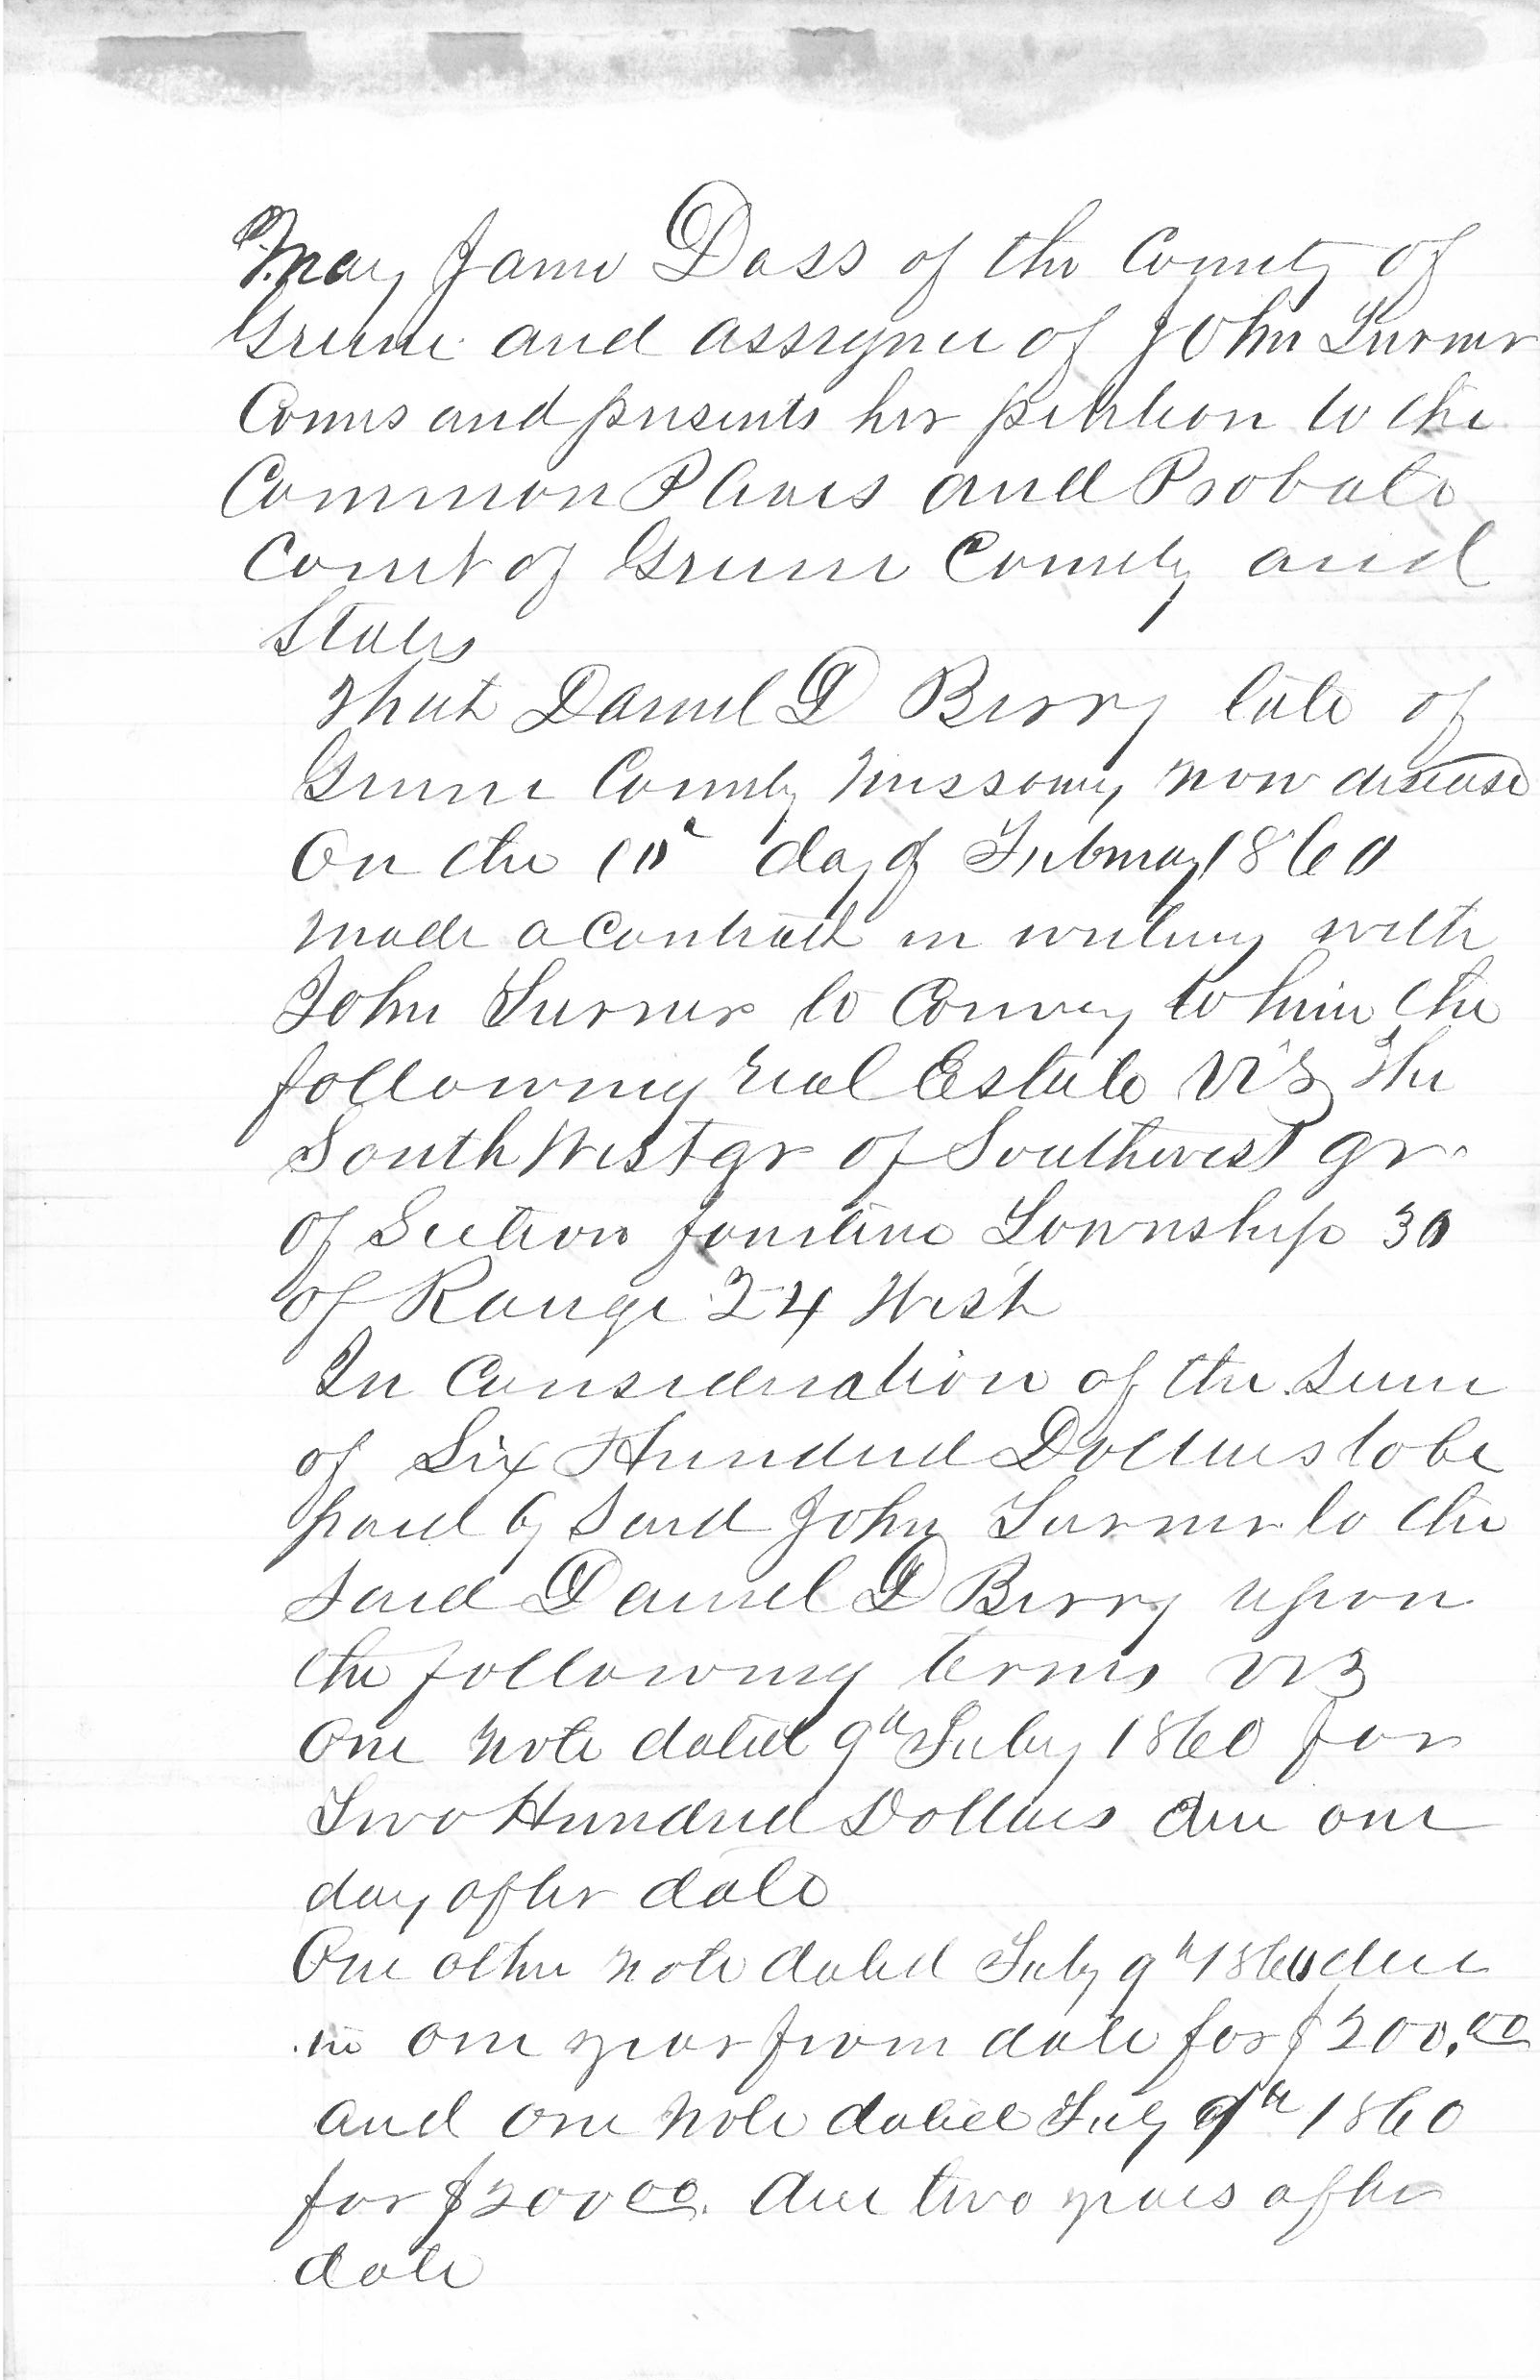 Mary Jane Dass of the County of
Greene and assignee of John Turner
Comes and presents her petition to the
Common Pleas and Probate
Court of Greene County and
States
That Daniel D Berry late of
Greene County Missouri, now deceased
On the 10th day of February 1860
made a contract in writing with
John Turner to Convey to him the
following real Estate viz The
South West qr of Southwest qr.
of Section fourteen Township 30
of Range 24 West
In Consideration of the sum
of Six Hundred Dollars to be
paid by said John Turner to the
said Daniel D Berry upon
the following terms viz
One note dated 9th Feby 1860 for
Two Hundred Dollars due one
day after date
One other note dated Feby 9th 1860 due
in one year from date for $200.00
and one note dated Feby 9th 1860
for $200 00. due two years after
date